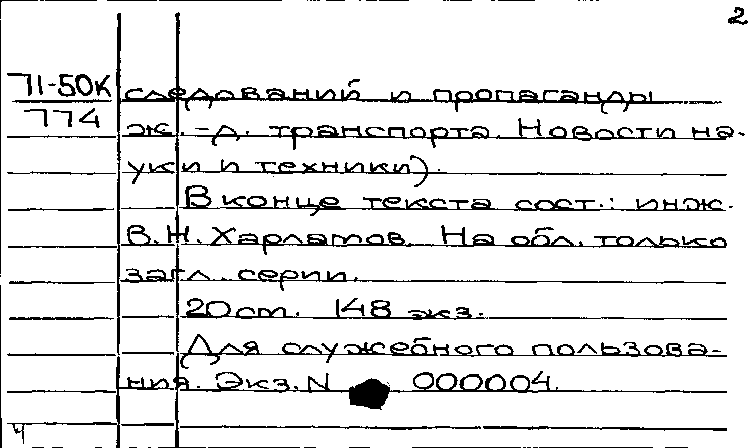 2
71-50К следований и пропаганды
774 ж.-д. транспорта. Новости на-
уки и техники).
В конце текста сост.: инж.
В.Н. Харламов. На обл. только
загл. серии.
20см. 148 экз.
Для служебного пользова-
ния. Экз. N 000004.
Ч